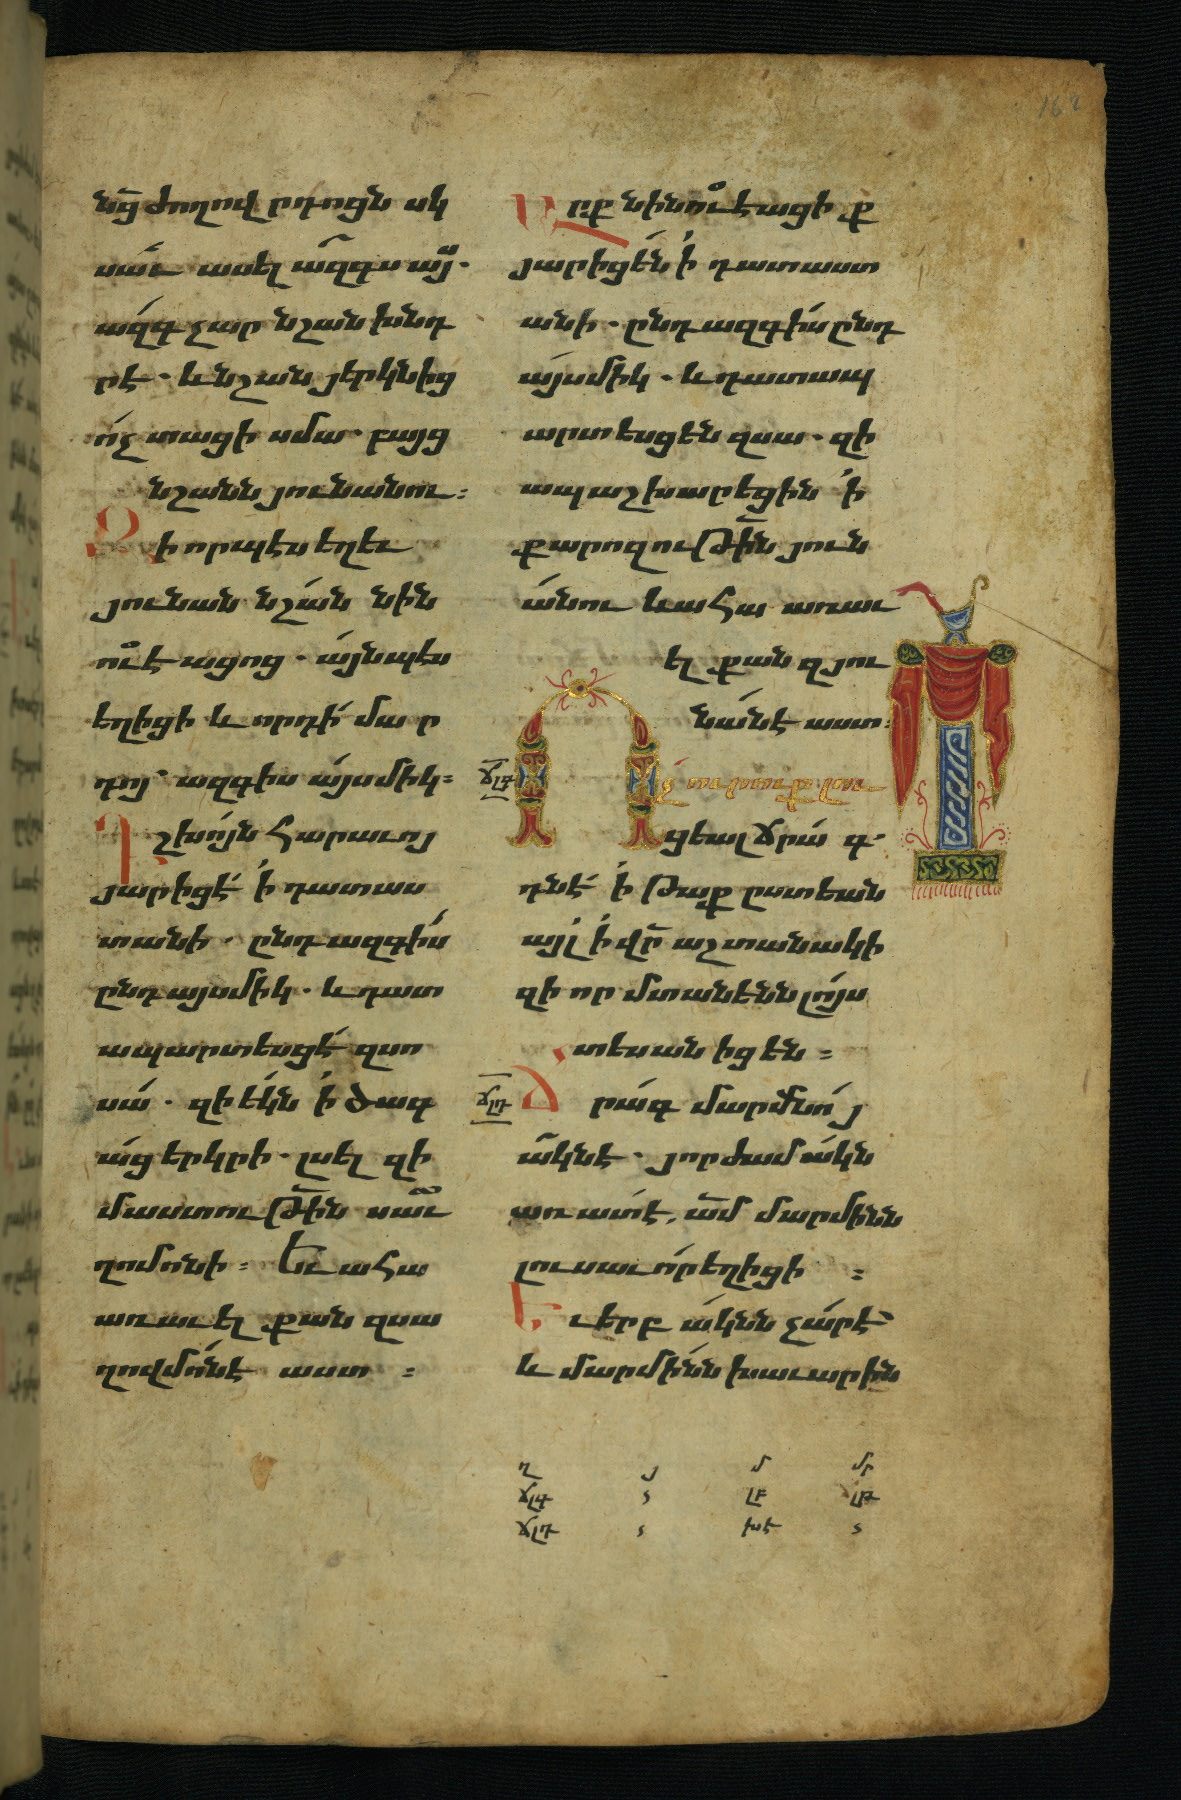 162
նց̃ ժողովրդոցն սկ
սաւ̃ ասել ազգս այ̃ս ·
ազգ չար նշան խնդ
րէ · և նշան յերկնից
ոչ տացի սմա · բայց
նշանն յունանու :
Զի որպէս եղև
յունան նշան նին
ուէացոց · այնպես
եղիցի և որդի մար
դոյ ազգիս այսմիկ :
Դշխոյն հարաւոյ
յարիցէ ի դատաս
տանի · ընդ ազգիս
ընդ այսմիկ · և դատ
ապարտեսցէ զսո
սա · զի եկն ի ծագ
աց երկրի · լսել զի
մաստութի̃ն սաւ̃
ղոմոնի : Եւ ահա
առաւել քան զսա
ղովմոնէ աստ :
Արք նինուէացիք
յարիցեն ի դատաստ
անի · ընդ ազգիս ընդ
այսմիկ · և դատապ
արտեսցեն զսա · զի
ապաշխարեցին ի
քարոզութե̃ն յուն
անու և ահա առաւ
ել քան զյու
նանէ աստ :
ՃԼԳ Ոչ ոք ո լու
ցեալ ճրագ ·
դնէ ի թաքստեան
այլ ի վր̃ աշտանակի
զի որ մտանեն լոյս
տեսանիցեն :
ՃԼԴ Ճրագ մարմնոյ
ակն է · յորժամ ակն
առատ է, ա̃մ մարմինն
լուսաւոր եղիցի :
Եւ երբ ակնն չար է
և մարմինն խաւարին
ղ յ մ մր
ճլգ լբ լթ
ճլդ խէ